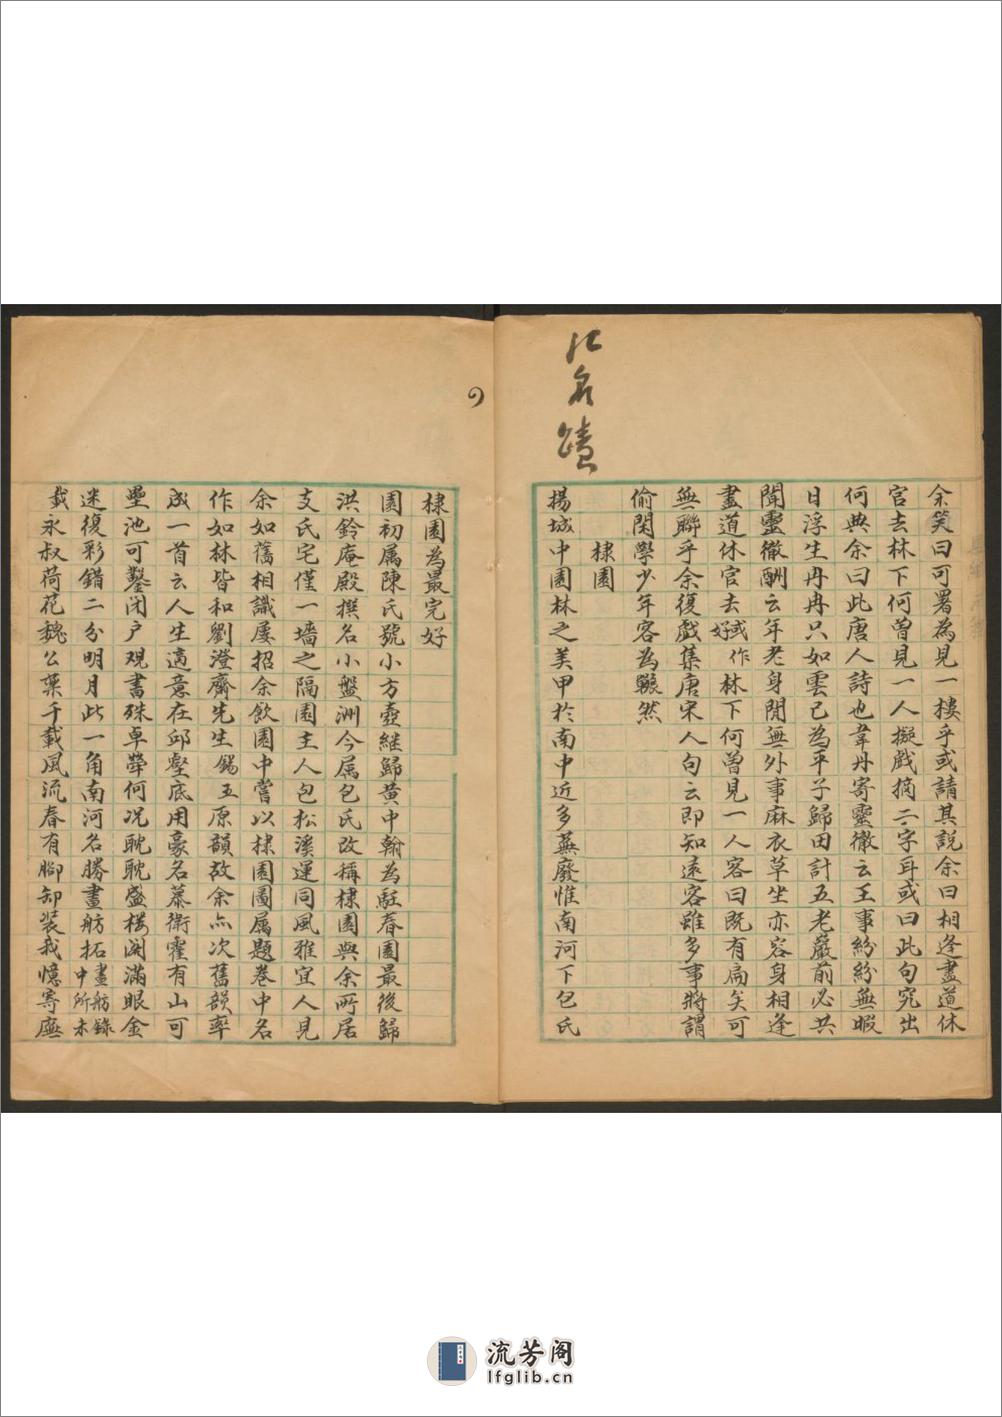 余笑曰可署為見一樓乎或請其説余曰相逢盡道休
官去林下何曾見一人擬戲摘二字耳或曰此句究出
何典余曰此唐人詩也韋丹寄靈徹云王事紛紛無暇
日浮生冉冉只如雲已為平子歸田計五老巖前必共
聞靈徹酬云年老身閒無外事麻衣草坐亦容身相逢
盡道休官去 或作好 林下何曾見一人客曰既有扁矣可
無聯乎余復戲集唐宋人句云即知遠客雖多事將謂
偷閑學少年客為囅然
棣園
揚城中園林之美甲於南中近多蕪廢惟南河下包氏
名蹟
棣園為最完好
園初属陳氏號小方壺継歸黄中翰為駐春園最後歸
洪鈴庵殿撰名小盤洲今属包氏改稱棣園與余所居
支氏宅僅一墻之隔園主人包松溪運同風雅宜人見
余如舊相識屢招余飲園中嘗以棣園圖属題卷中名
作如林皆和劉澄齋先生錫五原韻故余亦次舊韻率
成一首云人生適意在邱壑底用豪名慕衛霍有山可
壘池可鑿閉户观書殊卓犖何况耽耽盛楼阁滿眼金
迷復彩錯二分明月此一角南河名勝畫舫拓 畫舫錄中所未
载永叔荷花魏公藥千載風流春有脚却装我憶寄廡
流芳阁
lfglib.cn